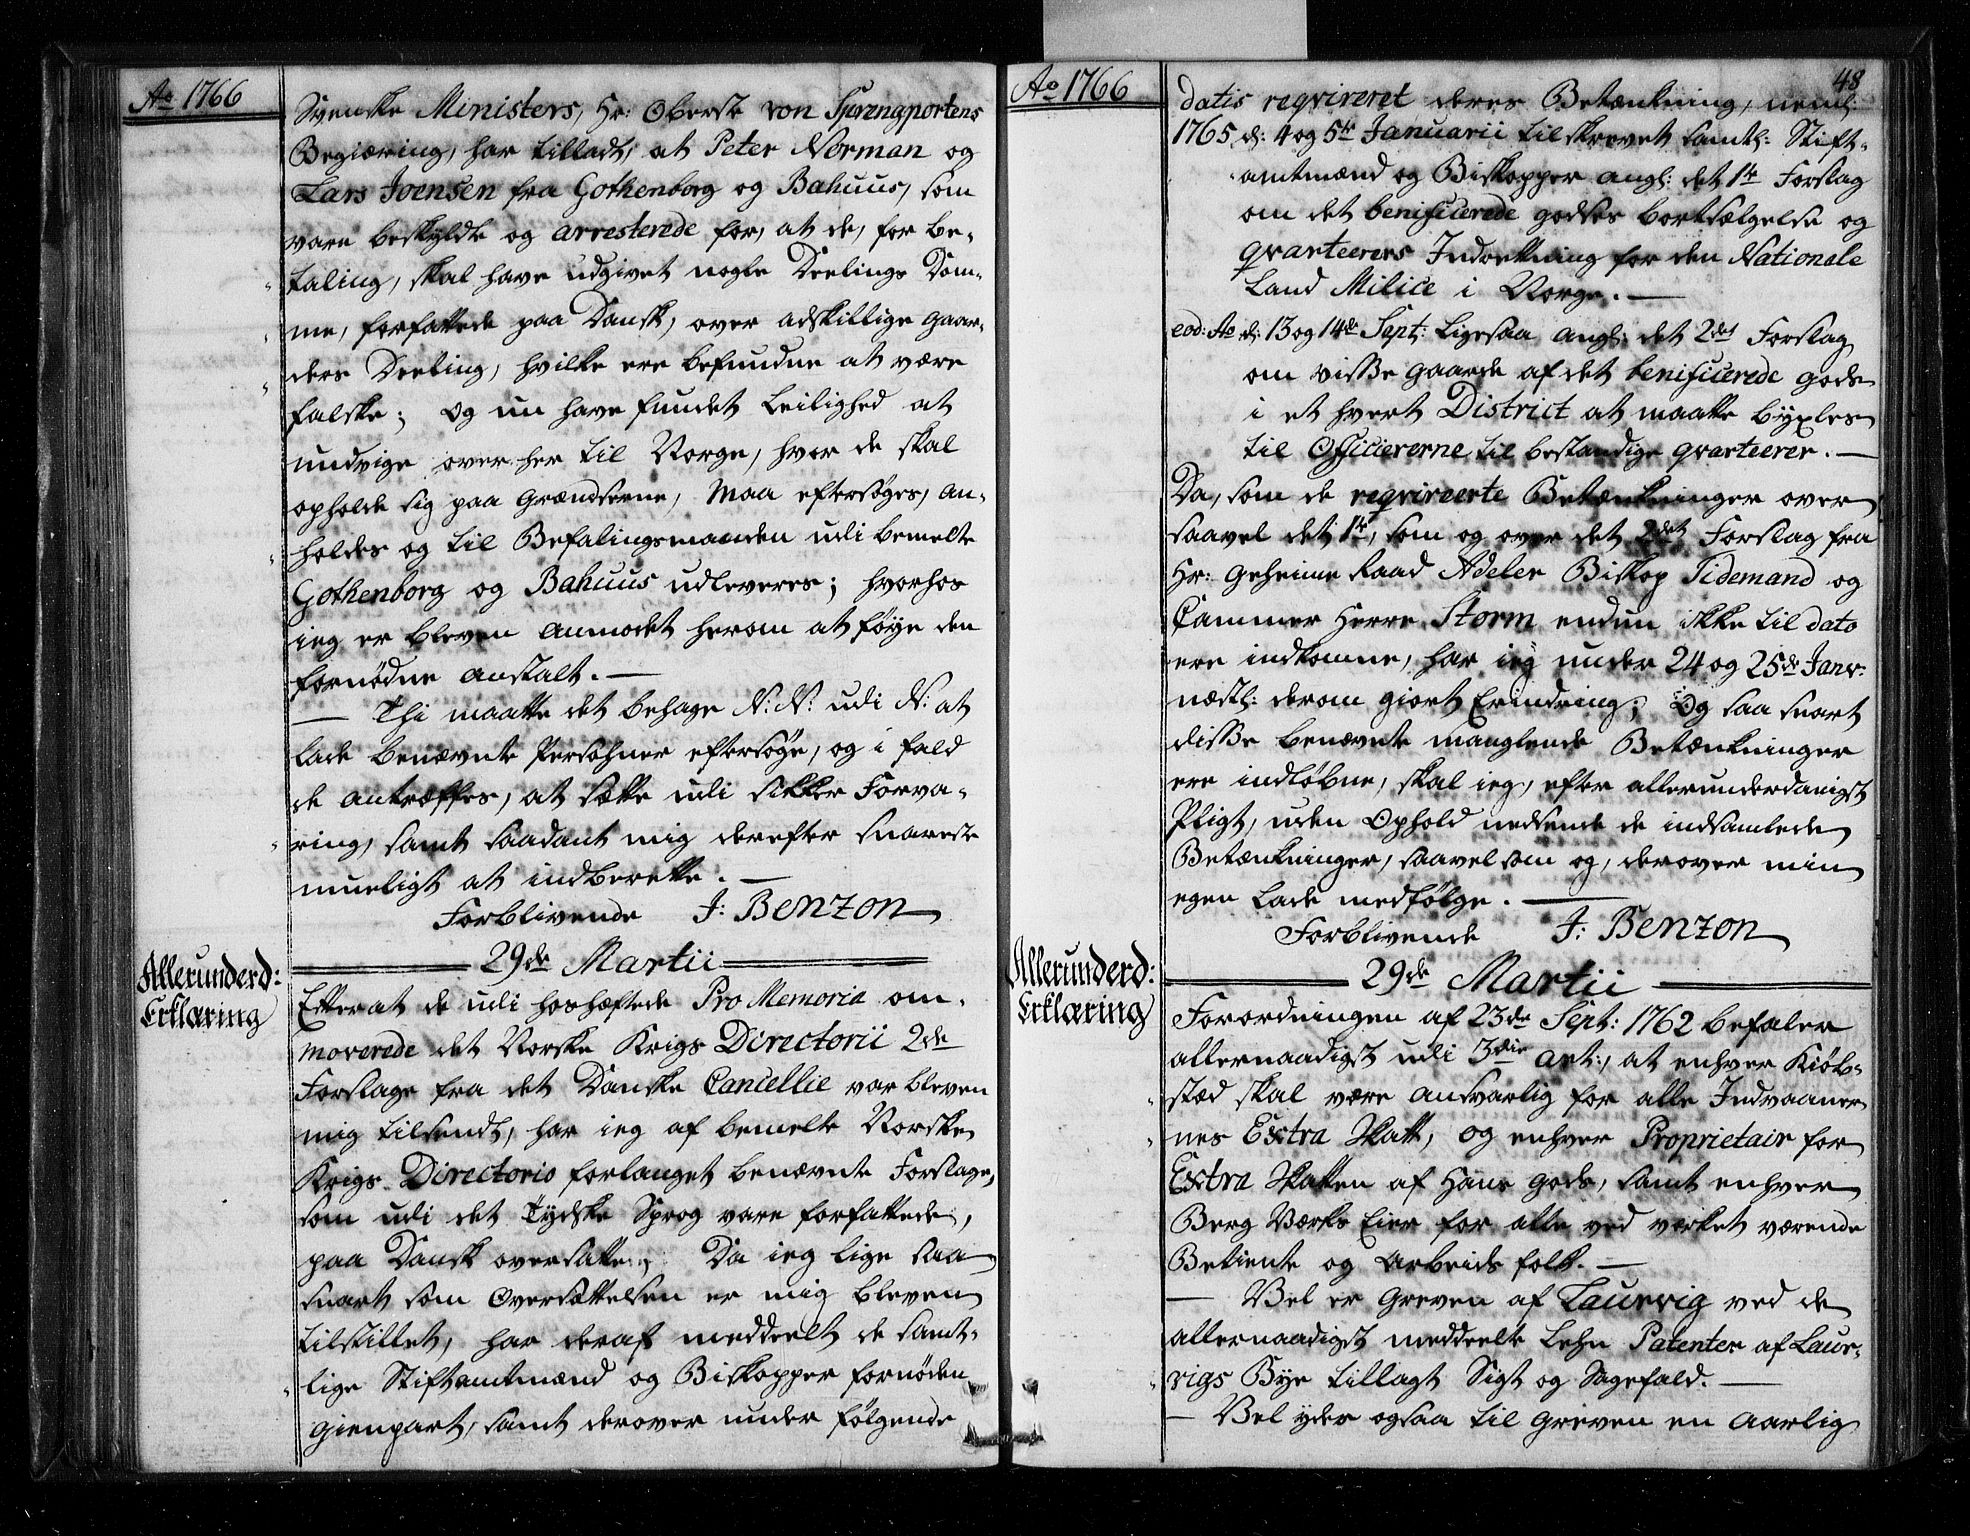 Ao 1766
Svenske Ministers, Hr: Oberst von Sprengportens
Begiæring, har tilladt, at Peter Norman og
Lars Joensen fra Gothenborg og Bahuus, som
vare beskyldte og arresterede for, at de, for be-
taling, skal have udgivet nogle Deelings Dom-
me, forfattede paa Dansk, over adskillige Gaar-
ders Deeling, hvilke ere befundne at være
falske; og nu have fundet Leilighed at
undvige over her til Norge, hvor de skal
opholde sig paa Grændserne, maa eftersøges, an-
holdes og til Befalingsmanden udi bemelte
Gothenborg og Bahuus udleveres; hvorhos
ieg er bleven anmodet herom at føye den
fornødne anstalt. —
— Thi maatte det behage N: N: udi N: at
lade benævnte Persohner eftersøge, og i fald
de antræffes, at sætte udi sikker Forva-
ring, samt saadant mig derefter snareste
mueligt at indberette. —
Forblivende J: Benzon
29de Martii
Allerunderd:
Erklæring
Efterat de udi hoshæftede Pro Memoria om-
moverede det Norske Krigs Directorii 2de
Forslage fra det Danske Cancellie var bleven
mig tilsendt, har ieg af bemelte Norske
Krigs Directorio forlanget benævnte Forslage,
som udi det Tydske Sprog vare forfattede,
paa Dansk oversatte; Da ieg lige saa
snart som Oversættelsen er mig bleven
tilstillet, har deraf meddeelt de samt-
lige Stiftamtmænd og Biskopper fornøden
Gienpart, samt derover under følgende
Ao 1766
48
datis reqvireret deres Betænkning, neml:
1765 d: 4 og 5te Januarii tilskrevet samtl: Stift-
amtmænd og Biskopper angl: det 1te Forslag
om det benificerede Godses bortsælgelse og
qvarteerers Indretning for den Nationale
Land Milice i Norge. —
eod: Ao d: 13 og 14de Sept: Ligesaa angl: det 2det Forslag
om visse Gaarde af det benificerede Gods
i et hvert District at maatte byxles
til Officiererne til bestandige qvarteerer. —
Da, som de reqvireerte Betænkninger over
saavel det 1te, som og over det 2det Forslag fra
Hr: Geheime Raad Adeler Biskop Tidemand og
Cammer Herre Storm endnu ikke til dato
ere indkomne, har ieg under 24 og 25de Janr:
næstl: derom giort Erindring; Og saa snart
disse benævnte manglende Betænkninger
ere indløbne, skal ieg, efter allerunderdanigst
Pligt, uden Ophold nedsende de indsamlede
Betænkninger, saavel som og, derover min
egen lade medfølge. —
Forblivende J: Benzon
29de Martii
Allerunderd:
Erklæring
Forordningen af 23de Sept: 1762 befaler
allernaadigst udi 3die Art:, at enhver Kiøb-
stæd skal være ansvarlig for alle Indvaaner-
nes Extra Skatt, og enhver Proprietair for
Extra Skatten af Hans Gods, samt enhver
Berg Værks Eier for alle ved værket værende
Betiente og Arbeids folk. —
— Vel er Greven af Laurvig ved de
allernaadigst meddeelte Lehn Patenter af Laur-
vigs Bye tillagt Sigt og Sagefald. —
— Vel yder ogsaa til Greven en aarlig